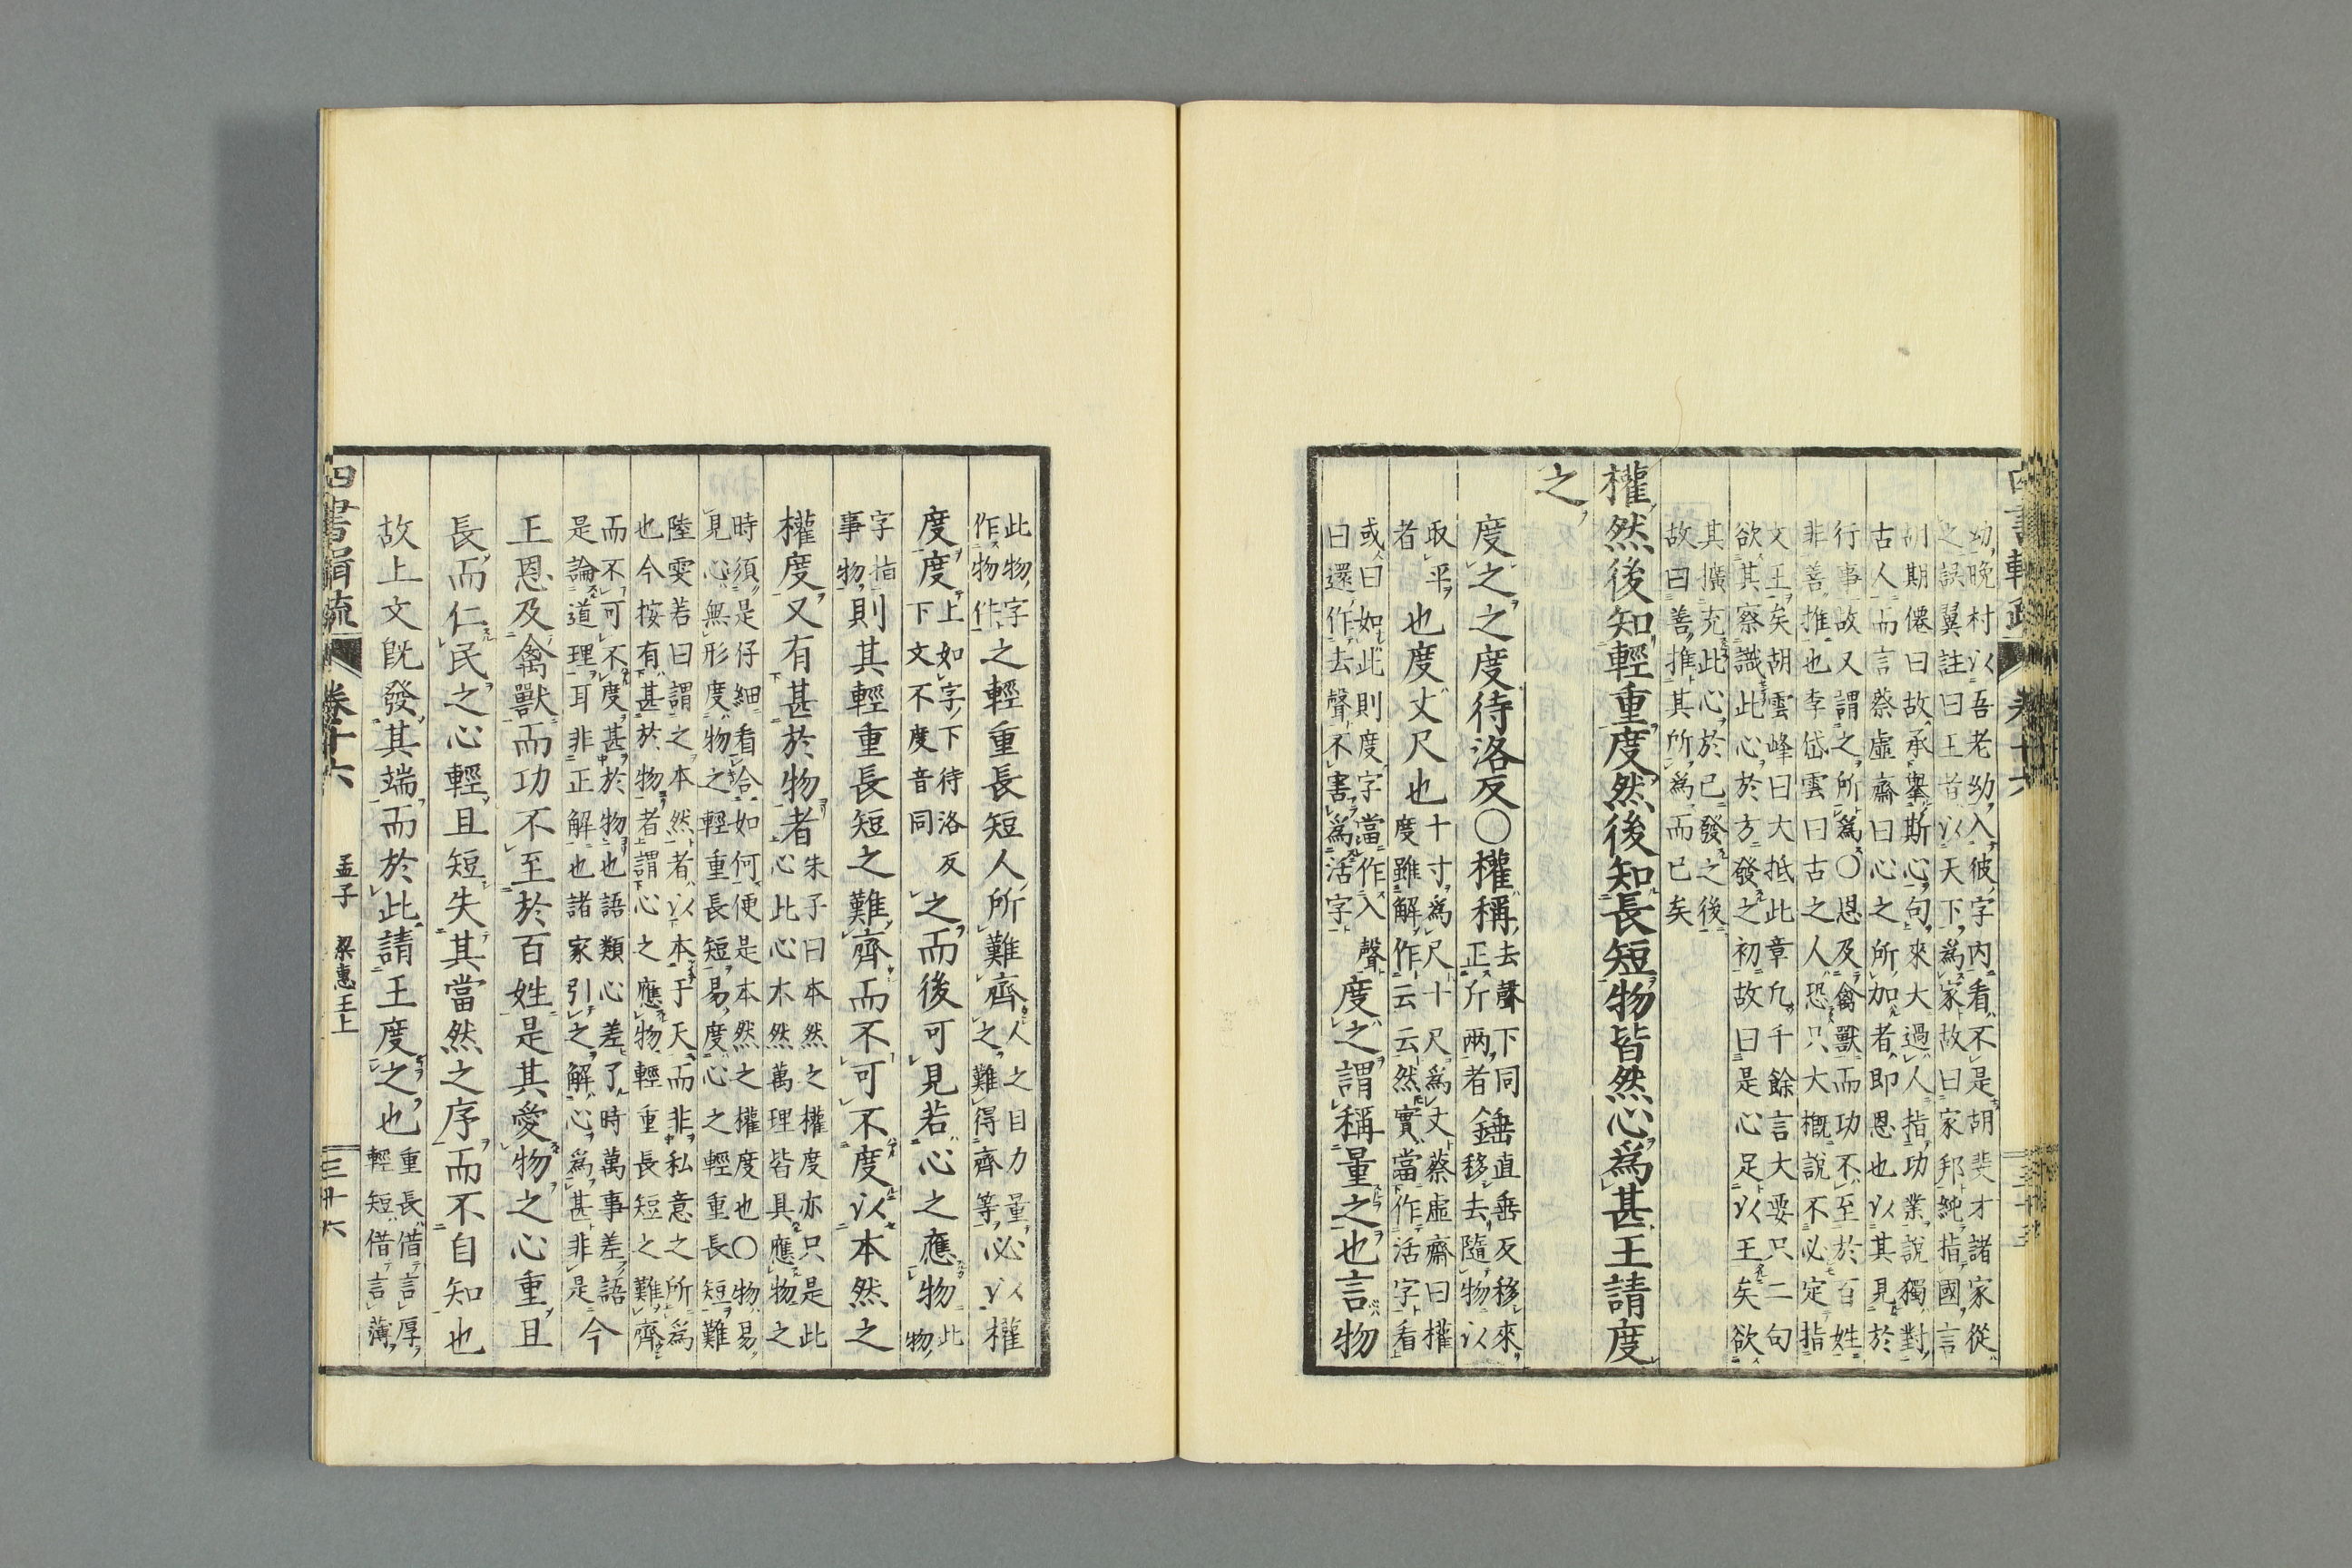 幼晚村以吾老幼入彼字内看不是胡斐才諸家從
之誤翼註曰王者以天下爲家故曰家邦純指國言
胡期僊曰故承擧斯心句來大過人指功業說獨對
古人而言蔡虛齋曰心之所加者即恩也以其見於
行事故又謂之所爲〇恩及禽獸而功不至於百姓
非善推也李岱雲曰古之人恐只大概說不必定指
文王矣胡雲峰曰大抵此章凢千餘言大要只二句
欲其察識此心於方發之初故曰是心足以王矣欲
其擴充此心於已發之後
故曰善推其所爲而已矣
權然後知輕重度然後知長短物皆然心爲甚王請度
之
度之之度待洛反〇權稱
去聲下同
正斤兩者
錘
直垂反移來
移去隨物以
取平
者
也度丈尺也
十寸爲尺十尺爲丈蔡虛齋曰權
度雖解作云云然實當作活字看
或曰如此則度字當作入聲
曰還作去聲不害爲活字
度之謂稱量之也言物
此物字
作物件
之輕重長短人所難齊
人之目力量
之難得齊等
必以權
度度
上如字下待洛反
下文不度音同
之而後可見若心之應物
此
物
字指
事物
則其輕重長短之難齊而不可不度以本然之
權度又有甚於物者
朱子曰本然之權度亦只是此
心此心本然萬理皆具應物之
時須是仔細看合如何便是本然之權度也〇物易
見心無形度物之輕重長短易度心之輕重長短難
陸雯若曰謂之本然者以本于天而非私意之所爲
也今按有甚於物者謂心之應物輕重長短之難齊
而不可不度甚於物也語類心差了時萬事差語
是論道理耳非正解也諸家引之解心爲甚非是
今
王恩及禽獸而功不至於百姓是其愛物之心重且
長而仁民之心輕且短失其當然之序而不自知也
故上文旣發其端而於此請王度之也
重長借言厚
輕短借言薄
四書輯疏 卷十六 孟子 梁惠王上 三十六